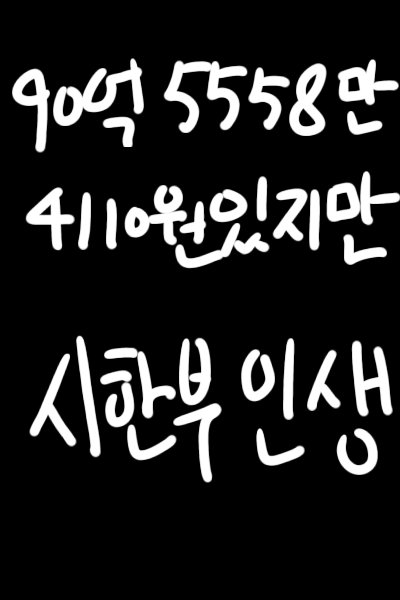 90억 5558만
4110원있지만
시한부 인생